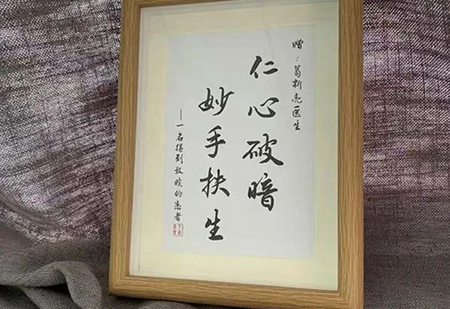 赠：葛新亮医生
仁心破暗
妙手扶生
——一名得到救赎的患者